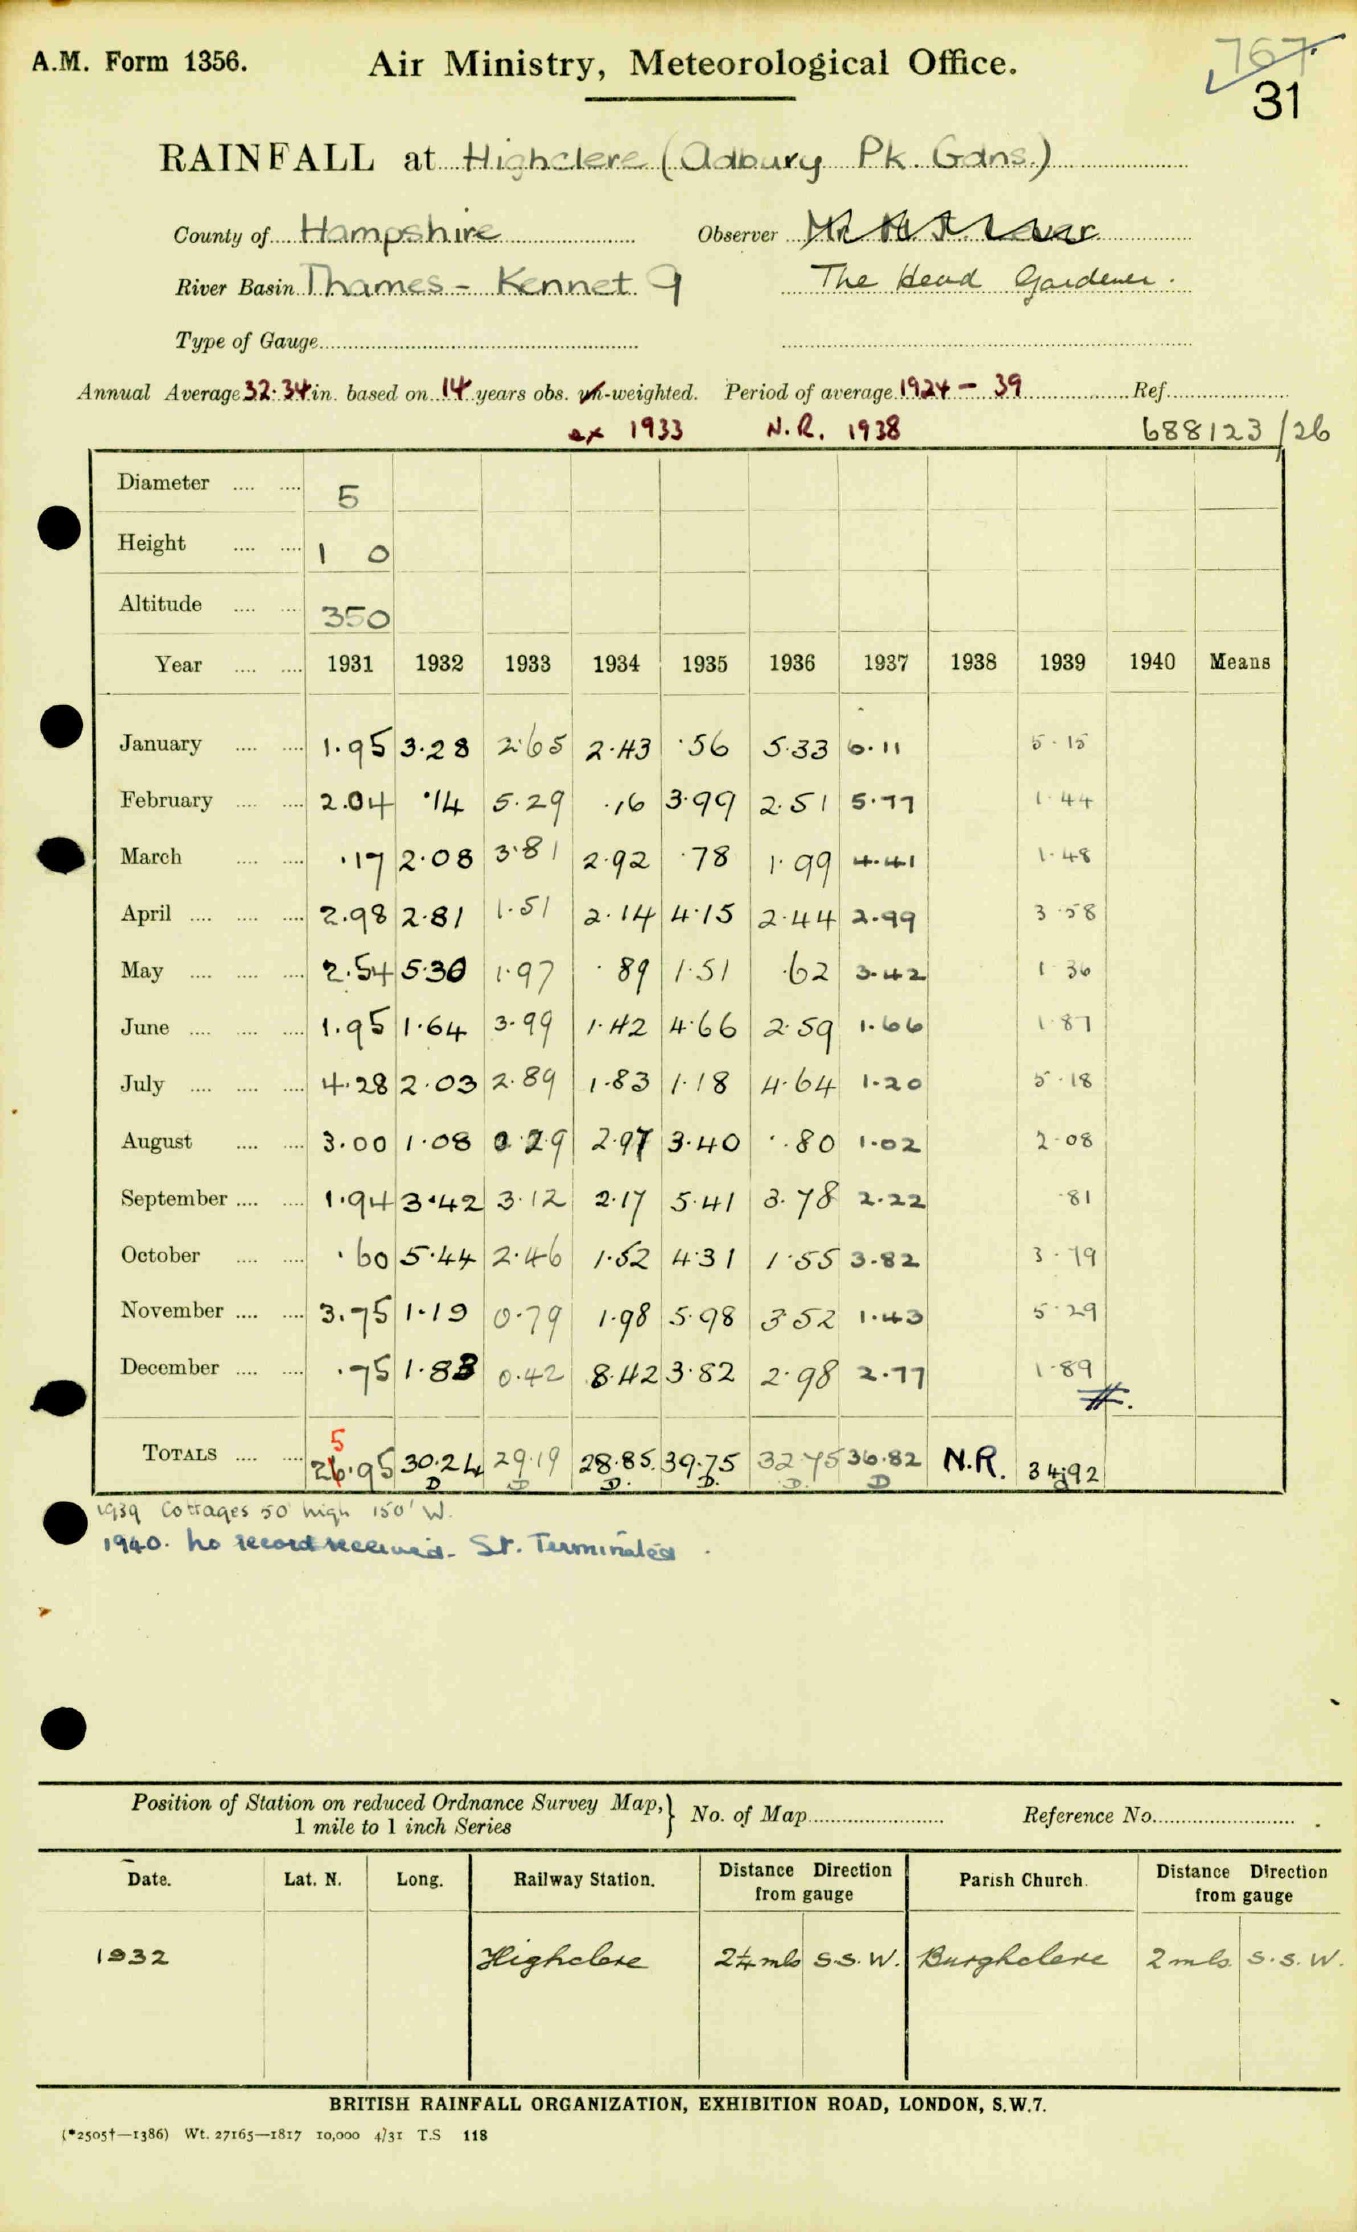 A.M. Form 1356. Air Ministry, Meteorological Office. 767
31
RAINFALL at Highclere (Adbury Pk. Gdns.)
County of Hampshire Observer
River Basin Thames - Kennet 9 The Head Gardener.
Type of Gauge
Annual Average 32.34 in. based on 14 years obs. un-weighted. Period of average 1924 - 39 Ref.
ex 1933 N.R. 1938 688123/26
Diameter 5
Height 1 0
Altitude 350
Year 1931 1932 1933 1934 1935 1936 1937 1938 1939 1940 Means
January 1.95 3.28 2.65 2.43 .56 5.33 6.11 5.15
February 2.04 .14 5.29 .16 3.99 2.51 5.77 1.44
March .17 2.08 3.81 2.92 .78 1.99 4.41 1.48
April 2.98 2.81 1.51 2.14 4.15 2.44 2.99 3.58
May 2.54 5.30 1.97 .89 1.51 .62 3.42 1.36
June 1.95 1.64 3.99 1.42 4.66 2.59 1.66 1.87
July 4.28 2.03 2.89 1.83 1.18 4.64 1.20 5.18
August 3.00 1.08 0.29 2.97 3.40 .80 1.02 2.08
September 1.94 3.42 3.12 2.17 5.41 3.78 2.22 .81
October .60 5.44 2.46 1.52 4.31 1.55 3.82 3.79
November 3.75 1.19 0.79 1.98 5.98 3.52 1.43 5.29
December .75 1.83 0.42 8.42 3.82 2.98 2.77 1.89
5
TOTALS 26.95 30.24 29.19 28.85 39.75 32.75 36.82 N.R. 34.92
D D D. D. D. D
1939 Cottages 50' high 150' W.
1940. no record received. St. Terminated.
Position of Station on reduced Ordnance Survey Map, } No. of Map Reference No.
1 mile to 1 inch Series
Date. Lat. N. Long. Railway Station. Distance Direction from gauge Parish Church. Distance Direction from gauge
1932 Highclere 2¼ mls S.S.W. Burghclere 2 mls S.S.W.
BRITISH RAINFALL ORGANIZATION, EXHIBITION ROAD, LONDON, S.W.7.
(*2505†—1386) Wt. 27165—1817 10,000 4/31 T.S 118